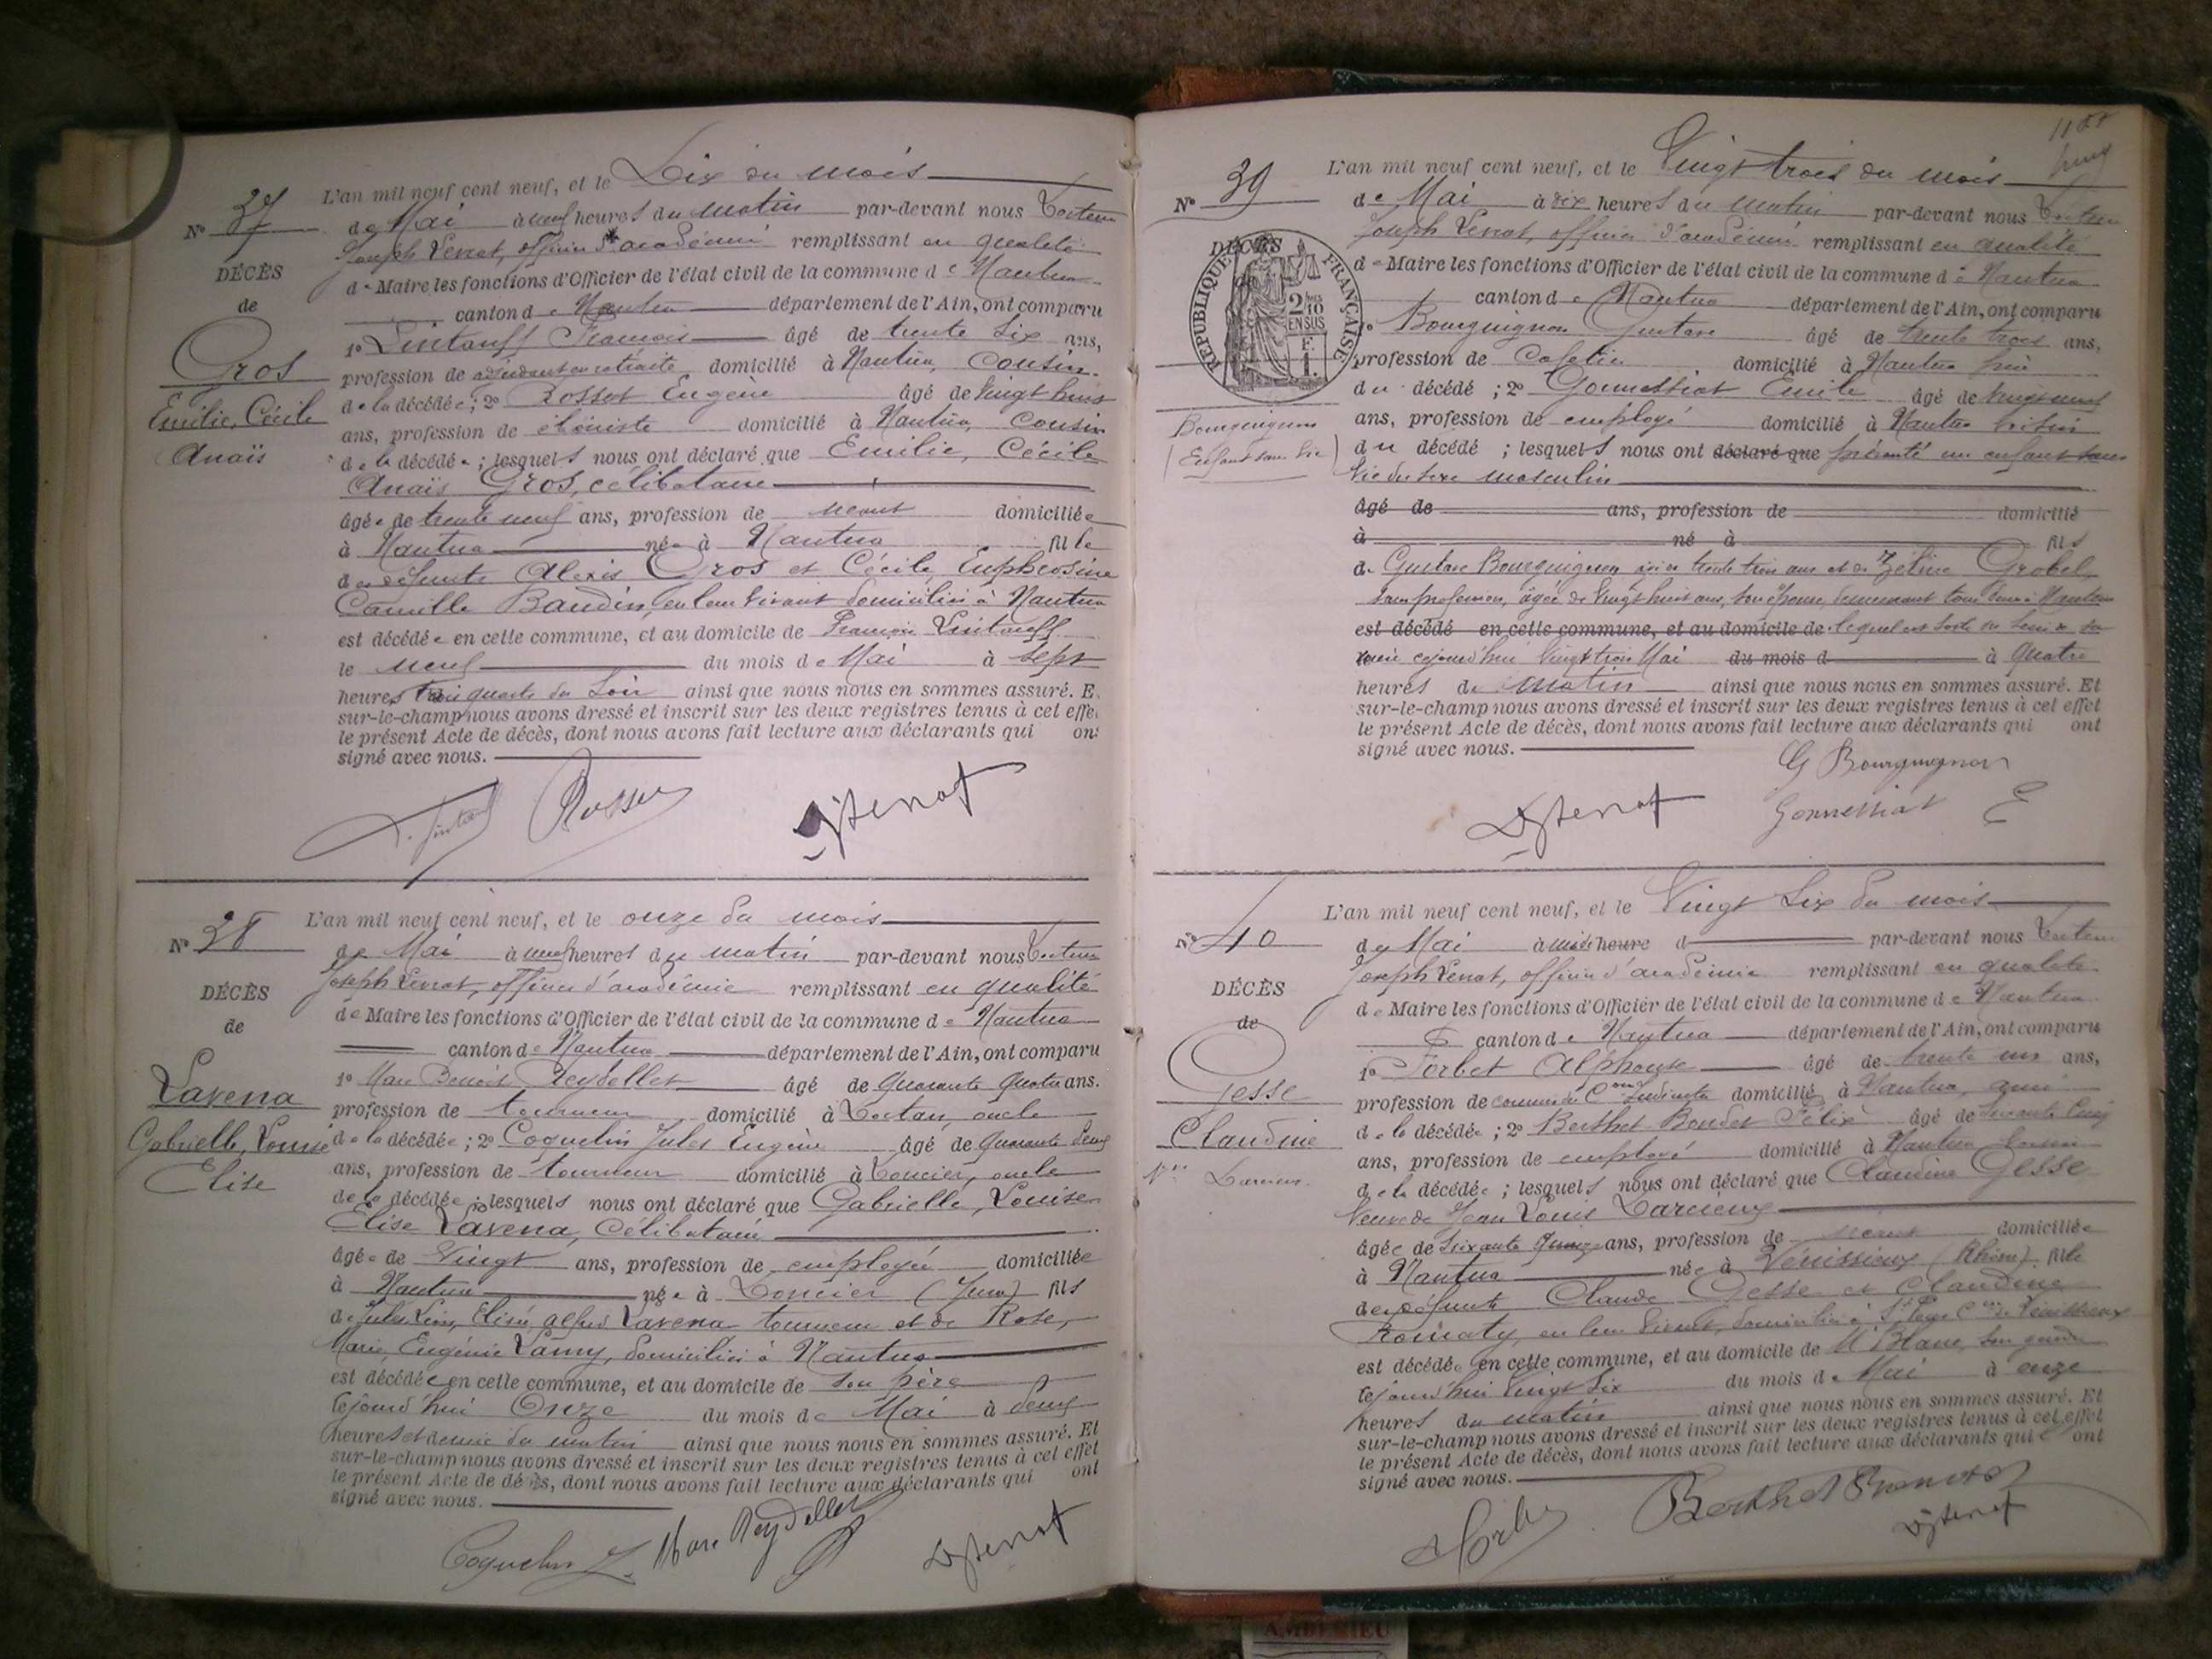 L'an mil neuf cent neuf, et le Dix du mois
N° 37
de Mai à neuf heures du matin par-devant nous Docteur
Joseph Levrat, officier d'académie remplissant en qualité
DÉCÈS
de Maire les fonctions d'Officier de l'état civil de la commune de Nantua
de
canton de Nantua département de l'Ain, ont comparu
1° François âgé de trente six ans,
Gros
profession de adjudant en retraite domicilié à Nantua, cousin
Emilie, Cécile
de la décédée; 2° Rosset Eugène âgé de vingt huit
ans, profession de ébéniste domicilié à Nantua, cousin
Anaïs
de la décédée; lesquels nous ont déclaré que Emilie, Cécile
Anaïs Gros, célibataire
âgée de trente neuf ans, profession de néant domiciliée
à Nantua née à Nantua fille
de défunts Alexis Gros et Cécile, Euphrosine
Camille Baudin, en leur vivant domiciliés à Nantua
est décédée en cette commune, et au domicile de François
le neuf du mois de Mai à sept
heures trois quarts du soir ainsi que nous nous en sommes assuré. E
sur-le-champ nous avons dressé et inscrit sur les deux registres tenus à cet effe
le présent Acte de décès, dont nous avons fait lecture aux déclarants qui on
signé avec nous.
Rosset
L'an mil neuf cent neuf, et le onze du mois
N° 38
de Mai à neuf heures du matin par-devant nous Docteur
Joseph Levrat, officier d'académie remplissant en qualité
DÉCÈS
de Maire les fonctions d'Officier de l'état civil de la commune de Nantua
de
canton de Nantua département de l'Ain, ont comparu
1° Marc Benoit Reydellet âgé de quarante quatre ans.
Lavenna
profession de tourneur domicilié à Dortan, oncle
Gabrielle, Louise
de la décédée; 2° Coquelin Jules Eugène âgé de quarante deux
ans, profession de tourneur domicilié à Doucier, oncle
Elise
de la décédée; lesquels nous ont déclaré que Gabrielle, Louise
Elise Lavenna, célibataire
âgée de vingt ans, profession de employée domiciliée
à Nantua née à Doucier (Jura) fils
de Jules Léon, Elisée, Alfred Lavenna tourneur et de Rose,
Marie, Eugénie Lamy, domiciliés à Nantua
est décédée en cette commune, et au domicile de son père
cejourd'hui Onze du mois de Mai à deux
heures et demie du matin ainsi que nous nous en sommes assuré. Et
sur-le-champ nous avons dressé et inscrit sur les deux registres tenus à cet effet
le présent Acte de décès, dont nous avons fait lecture aux déclarants qui ont
signé avec nous.
Coquelin J. Marc Reydellet
L'an mil neuf cent neuf, et le Vingt trois du mois
N° 39
de Mai à dix heures du matin par-devant nous Docteur
Joseph Levrat, officier d'académie remplissant en qualité
DÉCÈS
RÉPUBLIQUE FRANÇAISE
2/10 EN SUS
F. 1.
de Maire les fonctions d'Officier de l'état civil de la commune de Nantua
canton de Nantua département de l'Ain, ont comparu
1° Bourguignon Gustave âgé de trente trois ans,
profession de cafetier domicilié à Nantua père
du décédé; 2° Gonnessiat Emile âgé de vingt neuf
Bourguignon
ans, profession de employé domicilié à Nantua voisin
(Enfant sans vie)
du décédé; lesquels nous ont déclaré que présenté un enfant sans
vie du sexe masculin
âgé de ans, profession de domicilié
à né à fils
de Gustave Bourguignon âgé de trente trois ans et de Zéline Grobel,
sans profession, âgée de vingt huit ans, son épouse, demeurant tous deux à Nantua
est décédé en cette commune, et au domicile de lequel est sorti du sein de sa
mère cejourd'hui vingt trois Mai du mois d à quatre
heures du matin ainsi que nous nous en sommes assuré. Et
sur-le-champ nous avons dressé et inscrit sur les deux registres tenus à cet effet
le présent Acte de décès, dont nous avons fait lecture aux déclarants qui ont
signé avec nous.
G Bourguignon
Gonnessiat E
L'an mil neuf cent neuf, et le Vingt Six du mois
N° 40
de Mai à heure d par-devant nous Docteur
Joseph Levrat, officier d'académie remplissant en qualité
DÉCÈS
de Maire les fonctions d'Officier de l'état civil de la commune de Nantua
de
canton de Nantua département de l'Ain, ont comparu
1° Forbet Alphonse âgé de trente un ans,
Gesse
profession de domicilié à Nantua, ami
Claudine
de la décédée; 2° Berthet Bondet Félix âgé de soixante cinq
ans, profession de employé domicilié à Nantua
de la décédée; lesquels nous ont déclaré que Claudine Gesse
Veuve de Jean Louis Darcieux
âgée de soixante quinze ans, profession de néant domiciliée
à Nantua née à Vénissieux (Rhône) fille
de défunts Claude Gesse et Claudine
en leur vivant, domiciliés à
est décédée en cette commune, et au domicile de Mr Blanc, son gendre
cejourd'hui vingt six du mois de Mai à onze
heures du matin ainsi que nous nous en sommes assuré. Et
sur-le-champ nous avons dressé et inscrit sur les deux registres tenus à cet effet
le présent Acte de décès, dont nous avons fait lecture aux déclarants qui ont
signé avec nous.